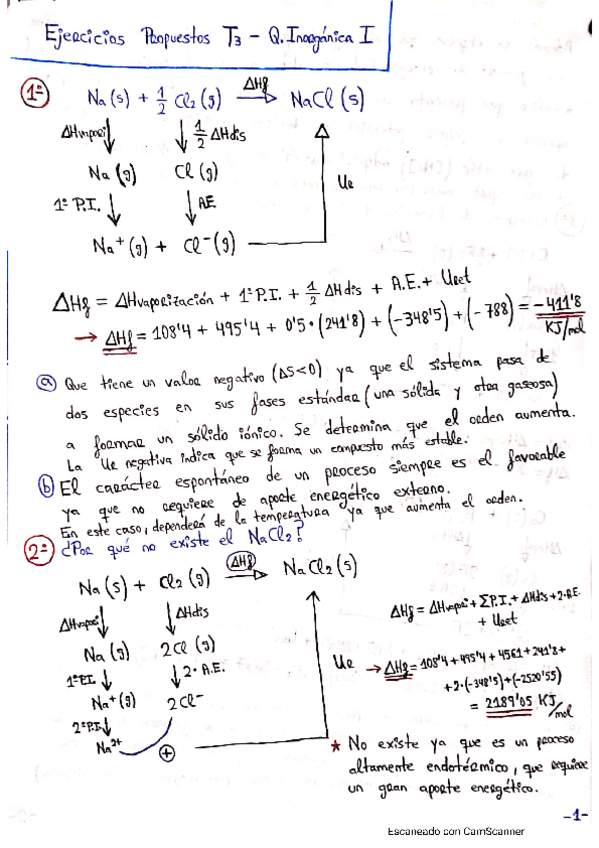 Ejercicios Propuestos T3 - Q. Inorgánica I
1º Na(s) + 1/2 Cl2(g) ΔHf → NaCl(s)
ΔHvapori ↓ ↓ 1/2 ΔHdis
Na(g) Cl(g) Ur
1º P.I. ↓ ↓ A.E.
Na+(g) + Cl-(g)
ΔHf = ΔHvaporización + 1º P.I. + 1/2 ΔHdis + A.E. + Uret
→ ΔHf = 108'4 + 495'4 + 0'5·(241'8) + (-348'5) + (-788) = -411'8 KJ/mol
a) Que tiene un valor negativo (ΔS<0) ya que el sistema pasa de
dos especies en sus fases estándar (una sólida y otra gaseosa)
a formar un sólido iónico. Se determina que el orden aumenta.
La Ur negativa indica que se forma un compuesto más estable.
b) El carácter espontáneo de un proceso siempre es el favorable
ya que no requiere de aporte energético externo.
En este caso, dependerá de la temperatura ya que aumenta el orden.
2º ¿Por qué no existe el NaCl2?
Na(s) + Cl2(g) ΔHf → NaCl2(s)
ΔHvapori ↓ ↓ ΔHdis
Na(g) 2Cl(g)
1º P.I. ↓ ↓ 2·A.E.
Na+(g) 2Cl-
2º P.I. ↓
Na2+ +
Ur
ΔHf = ΔHvapori + ΣP.I. + ΔHdis + 2·A.E.
+ Uret
→ ΔHf = 108'4 + 495'4 + 4561 + 241'8 +
+ 2·(-348'5) + (-2520'55)
= 2189'05 KJ/mol
★ No existe ya que es un proceso
altamente endotérmico, que requiere
un gran aporte energético.
-1-
Escaneado con CamScanner